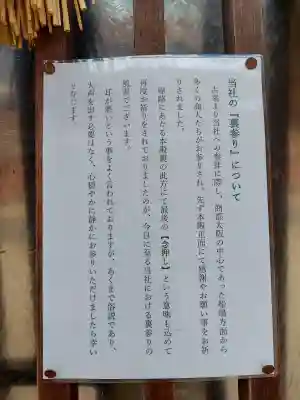 当社の『裏参り』について
古来より当社への参拝に際し、商都大阪の中心であった船場方面から
多くの商人たちがお参りされ、先ず本殿正面にて感謝やお願い事をお祈
りされました。
帰路にあたる本殿裏の此方にて最後の【念押し】という意味も込めて
再度お祈りをされておりましたのが、今日に至る当社における裏参りの
風習でございます。
耳が悪いという事をよく言われておりますが、あくまで俗説であり、
大声を出す必要はなく、心穏やかに静かにお参りいただけましたら幸い
と存じます。